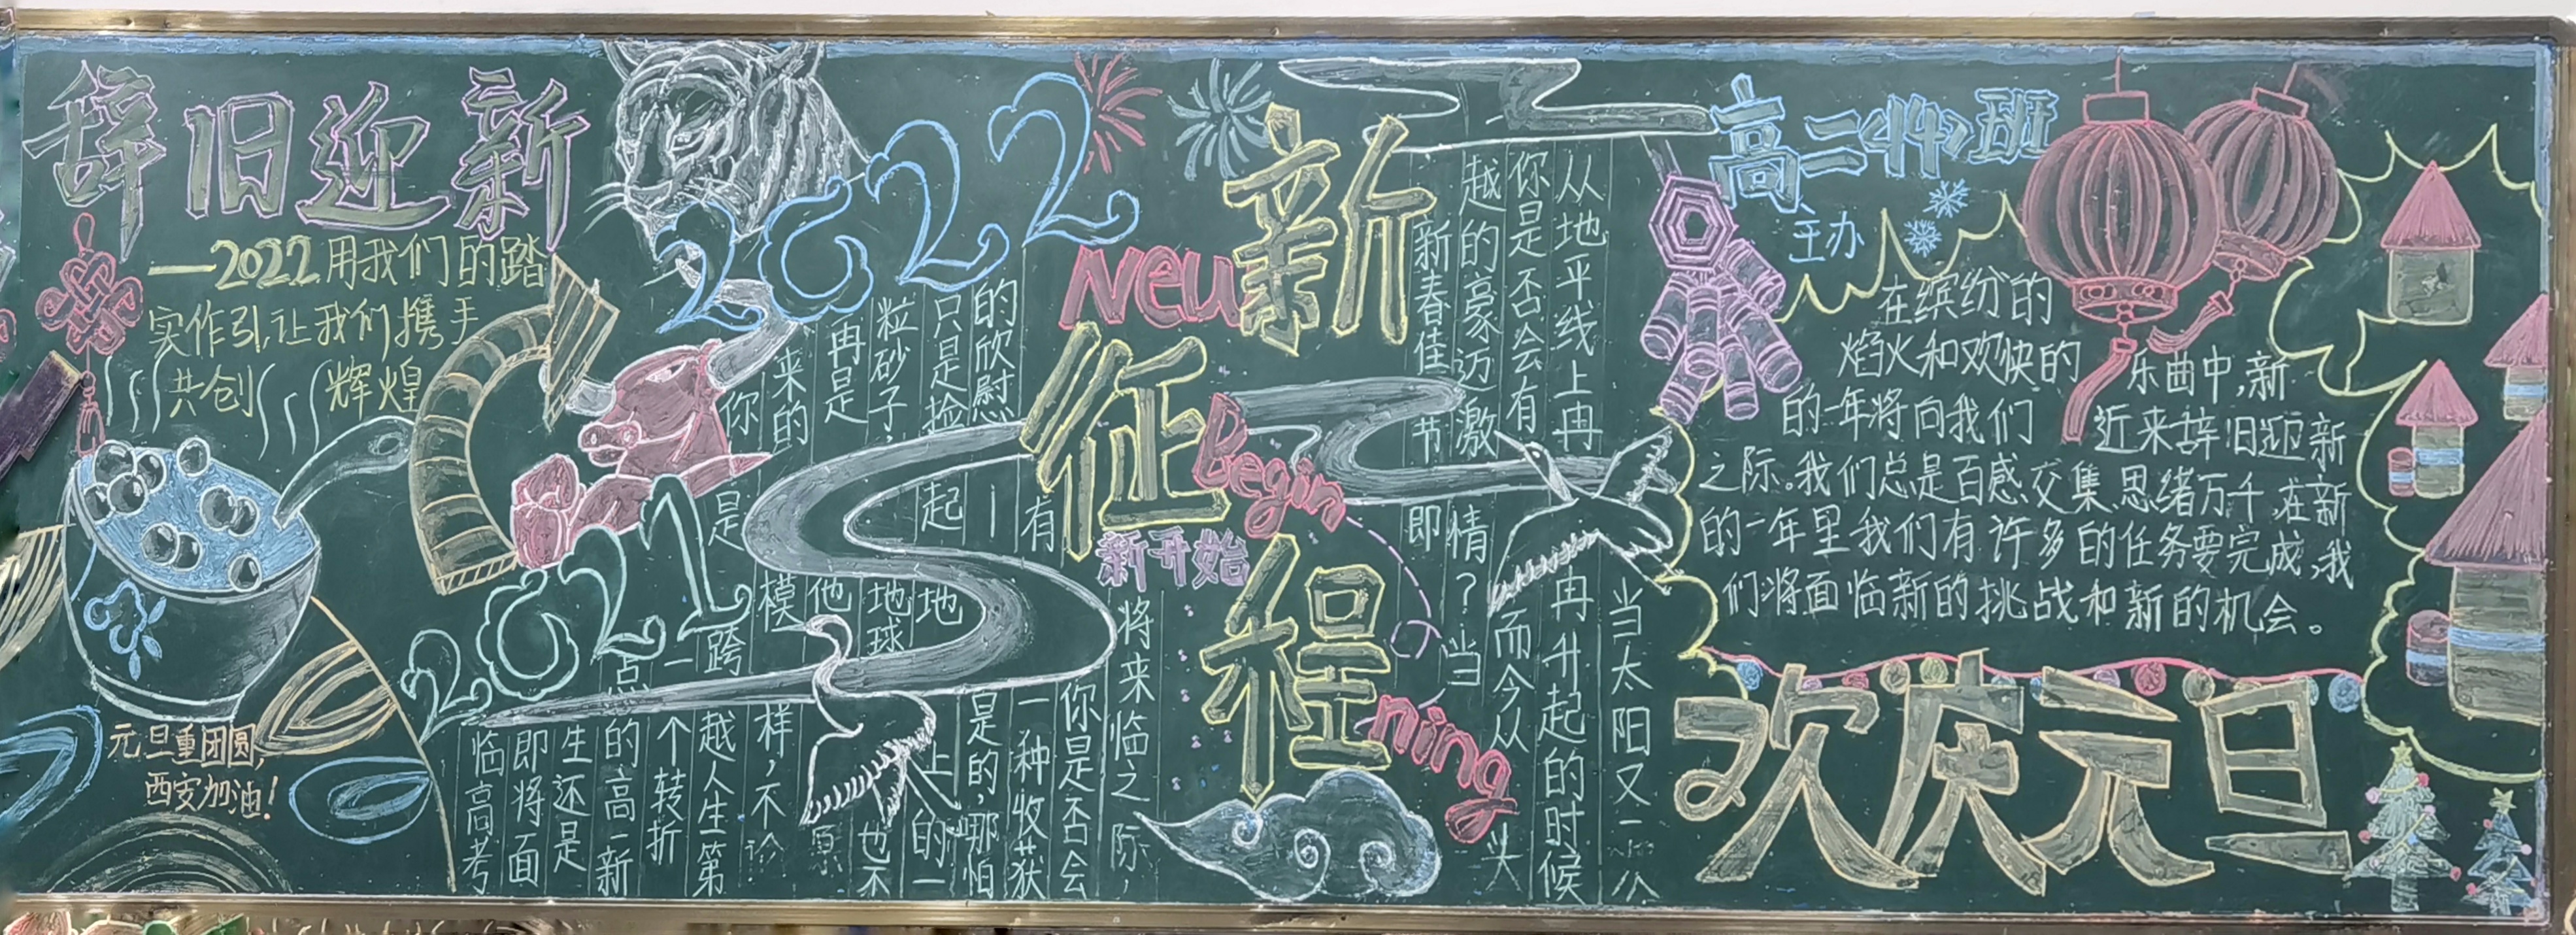 辞旧迎新
——2022用我们的踏
实作引,让我们携手
共创辉煌
元旦重团圆,
西安加油!
2022
2021
新征程
Neu
Begin
ning
新开始
当太阳又一次
从地平线上冉冉升起的时候
你是否会有而今从头
越的豪迈激情?当
新春佳节即
将来临之际,
你是否会
有一种收获
的欣慰是的,哪怕
只是捡起地上的一
粒砂子,地球也不
再是他原
来的模样,不论
你是跨越人生第
一个转折
点的高一新
生还是
即将面
临高考
高二〈44〉班
主办
在缤纷的
焰火和欢快的乐曲中,新
的一年将向我们近来辞旧迎新
之际。我们总是百感交集思绪万千,在新
的一年里我们有许多的任务要完成,我
们将面临新的挑战和新的机会。
欢庆元旦